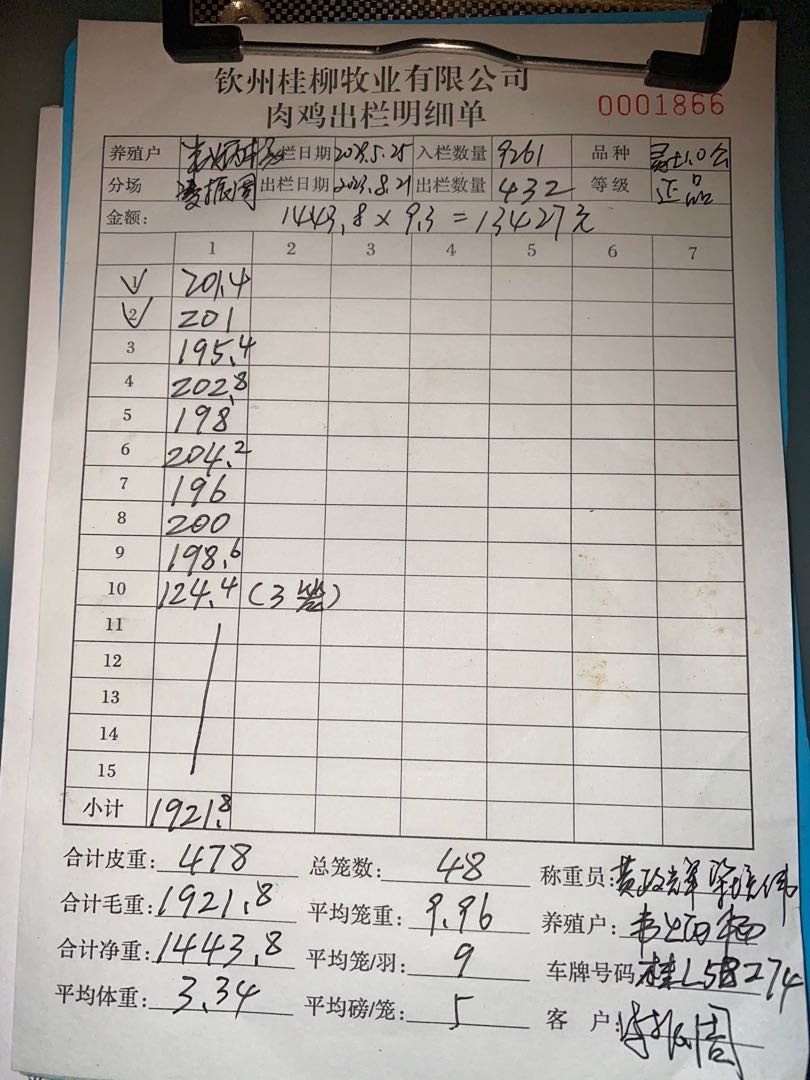 钦州桂柳牧业有限公司
肉鸡出栏明细单 0001866
养殖户 栏日期 2023.5.25 入栏数量 9261 品种
分场 凌振周 出栏日期 2023.8.21 出栏数量 432 等级 正品
金额: 1443.8 × 9.3 = 13427元
1 2 3 4 5 6 7
1 201.4
2 201
3 195.4
4 202.8
5 198
6 204.2
7 196
8 200
9 198.6
10 124.4 (3笼)
11
12
13
14
15
小计 1921.8
合计皮重: 478 总笼数: 48 称重员:
合计毛重: 1921.8 平均笼重: 9.96 养殖户:
合计净重: 1443.8 平均笼/羽: 9 车牌号码 桂L5B274
平均体重: 3.34 平均磅/笼: 5 客 户: